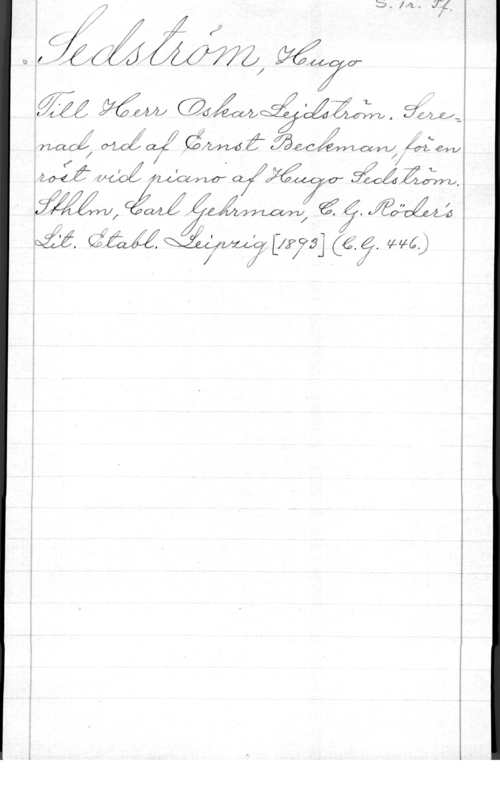 S. 1r. Pf.
Sedström, Hugo
Till Herr Oskar Lejdström. Sere=
nad, ord af Ernst Beckman, för en
röst vid piano af Hugo Sedström.
Sthlm, Carl Gehrman, C. G. Röder's
Lit. Etabl. Leipzig [1893] (C.G. 446.)